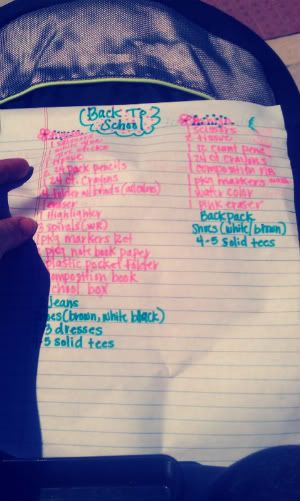 Back To
School
glue
24 pack pencils
24 ct. crayons
eraser
Highlighter
3 spirals (WR)
1 pkg markers 12ct
1 pkg note book paper
plastic pocket folder
composition book
school box
Jeans
oes (brown, white black)
3 dresses
5 solid tees
1 scissors
2 tissue
1 12 count pencil
1 24 ct crayons
1 composition n.b
1 pkg markers
1 water color
1 pink eraser
Backpack
Shoes (white/brown)
4-5 solid tees